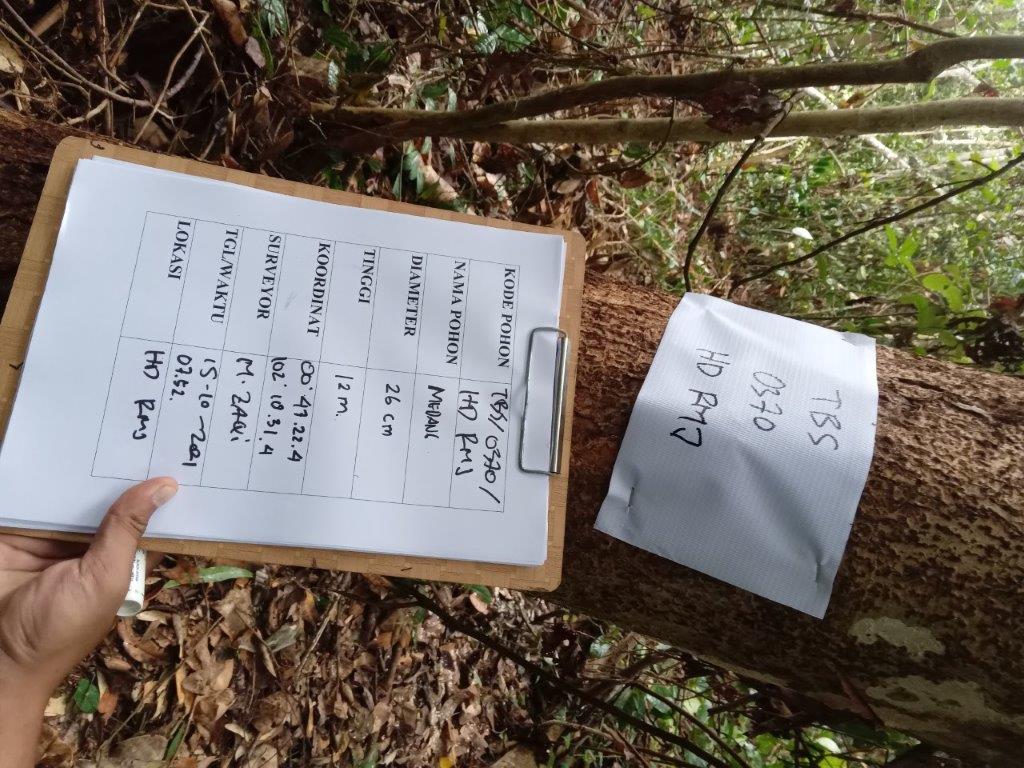 KODE POHON TBS/0370/
HD RMJ
NAMA POHON MEDANG
DIAMETER 26 cm
TINGGI 12 m.
KOORDINAT 00°.47.22.4
102°.10.31.4
SURVEYOR M. ZAKI
TGL/WAKTU 15-10-2021
07.52.
LOKASI HD RMJ
TBS
0370
HD RMJ